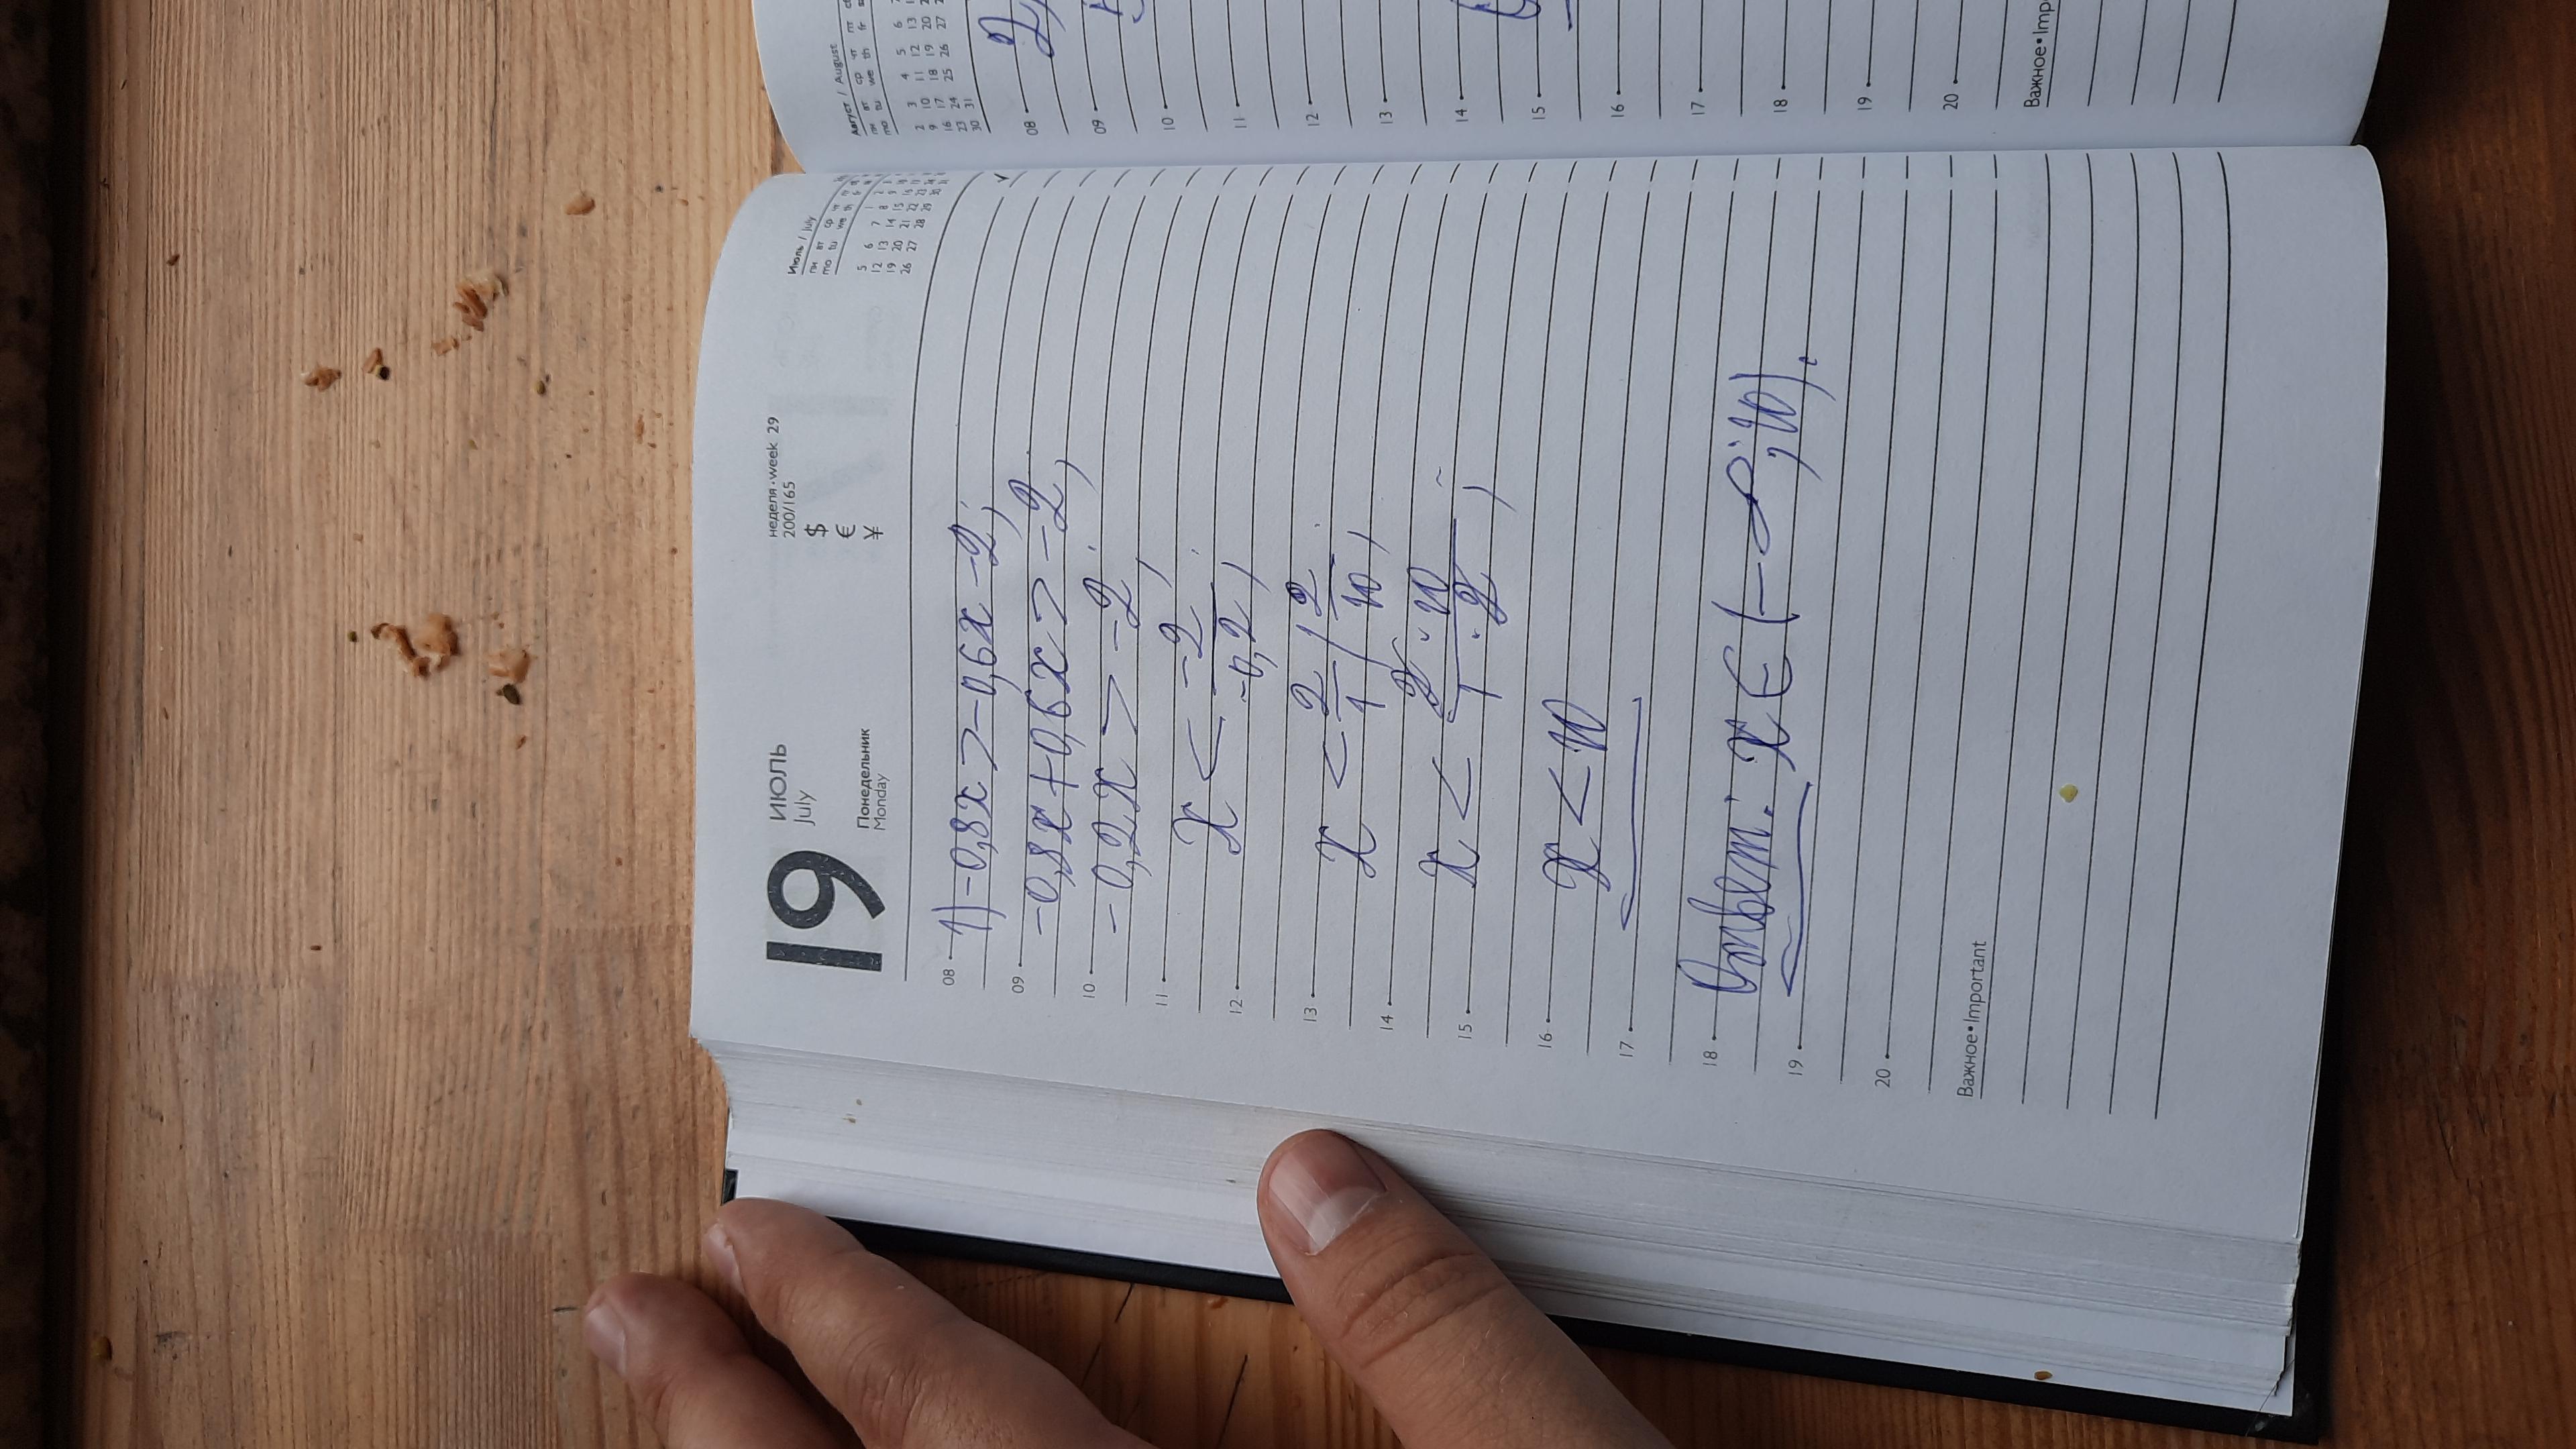 19
ИЮЛЬ
July
Понедельник
Monday
неделя•week 29
200/165
$
€
¥
Июль / July
пн
mo
вт
tu
ср
we
чт
th
5 6 7 1 2
12 13 14 8 9
19 20 21 15 16
26 27 28 22 23
29 30
08 1) -0,8x > -0,6x -2;
09 -0,8x+0,6x > -2;
10 -0,2x > -2;
11 x < -2/-0,2;
12
13 x < 2/1 / 2/10;
14
15 x < 2·10/1·2;
16 x < 10
17
18 Ответ: x ∈ (-∞; 10).
19
20
Важное•Important
Август / August
пн вт ср чт пт
mo tu we th fr
2 3 4 5 6
9 10 11 12 13
16 17 18 19 20
23 24 25 26 27
30 31
08
09
10
11
12
13
14
15
16
17
18
19
20
Важное•Imp